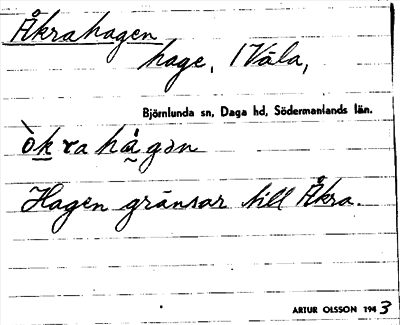 Åkrahagen
hage, 1 Väla,
Björnlunda sn, Daga hd, Södermanlands län.
òkra hágən
Hagen gränsar till Åkra.
ARTUR OLSSON 1943